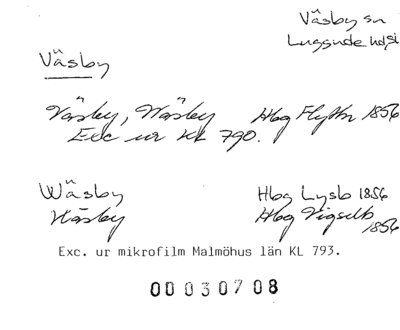 Väsby sn
Luggude hd, si
Väsby
Väsby, Wäsby Hbg Flyttn 1856
Exc ur KL 790.
Wäsby Hbg Lysb 1856
Wäsby Hbg Vigselb 1856
Exc. ur mikrofilm Malmöhus län KL 793.
00030708